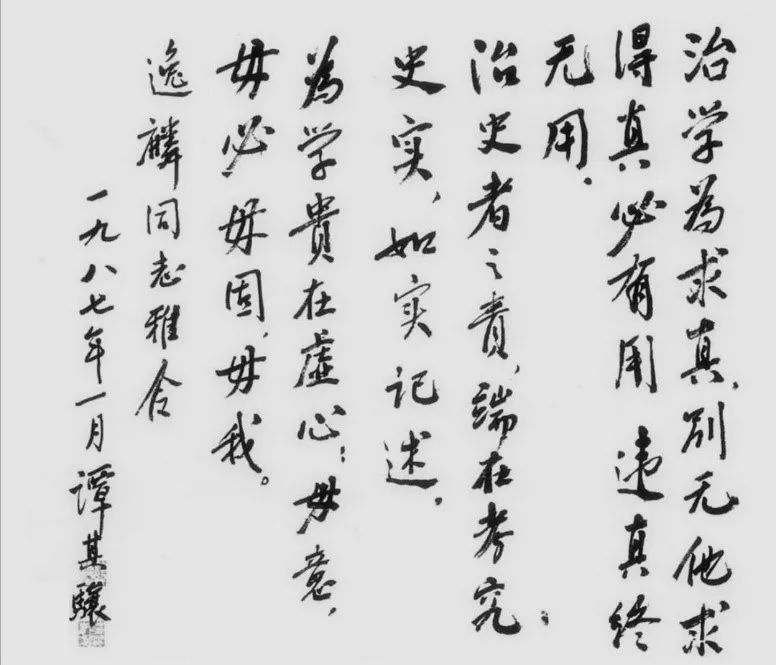 治学为求真，别无他求
得真必有用 违真终
无用．
治史者之责，端在考究
史实，如实记述。
为学貴在虚心：毋意，
毋必毋固，毋我。
逸麟同志雅合
一九八七年一月 谭其骧